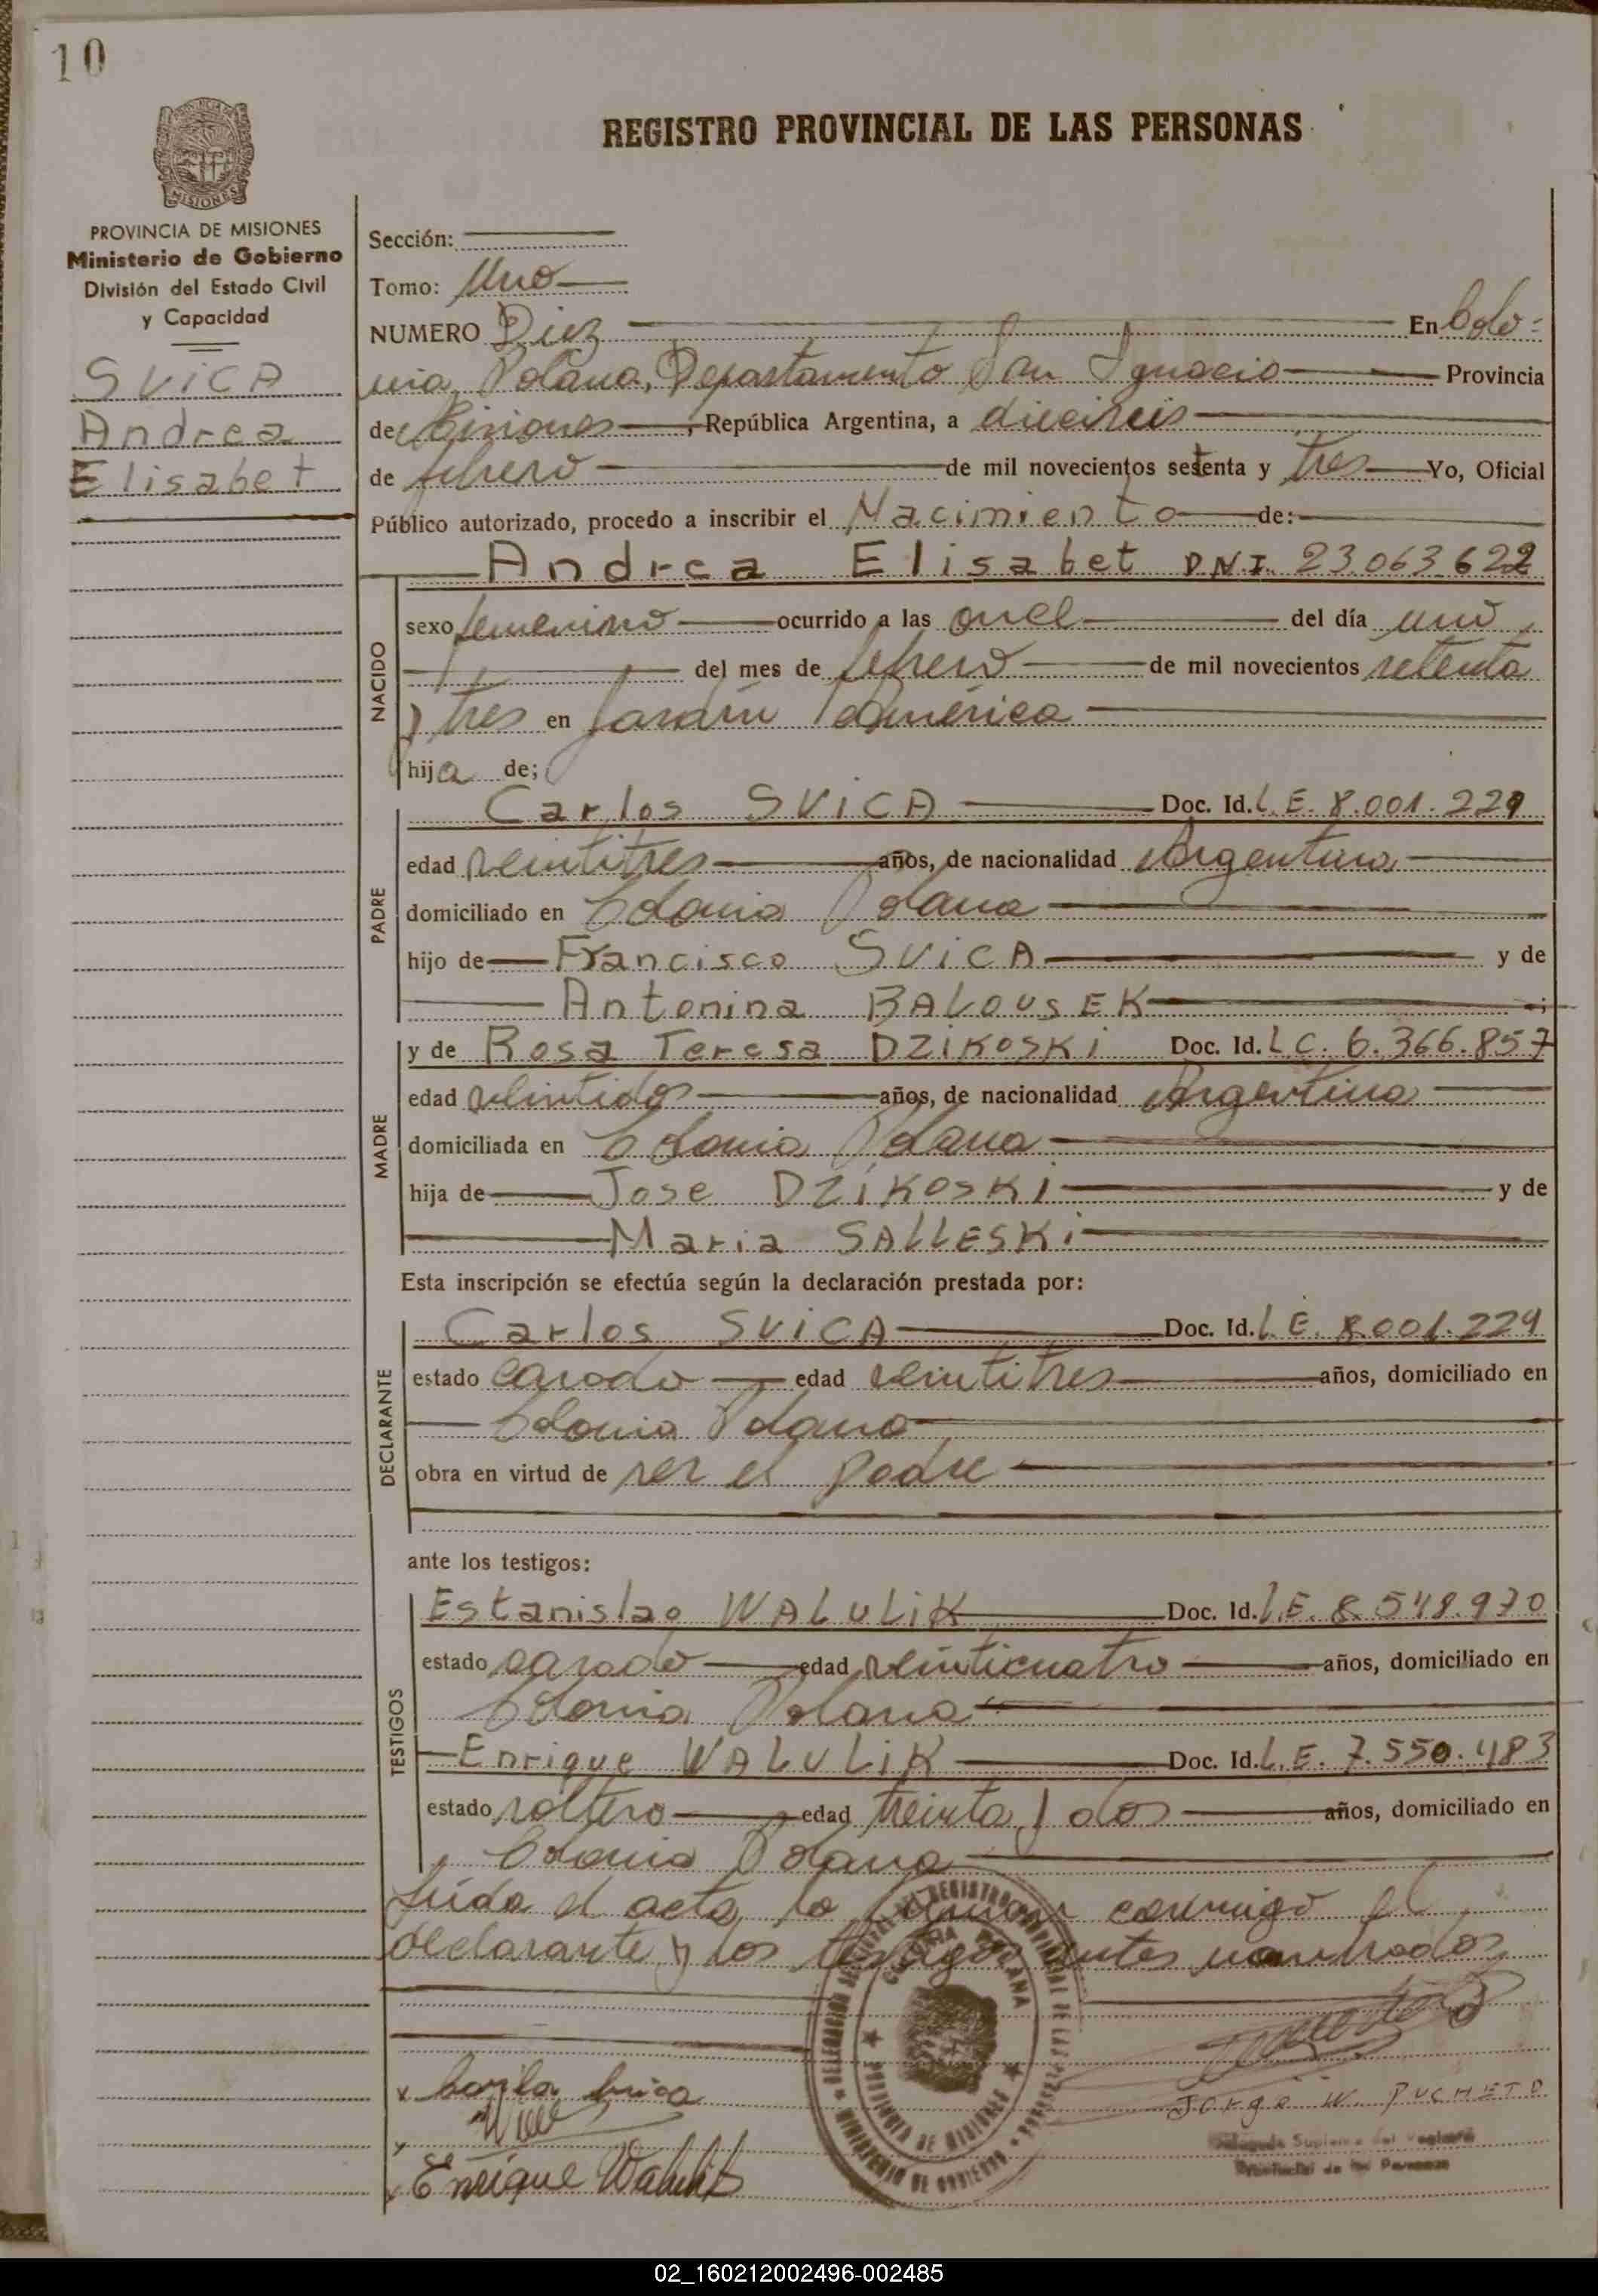 10
REGISTRO PROVINCIAL DE LAS PERSONAS
MISIONES
PROVINCIA DE MISIONES
Ministerio de Gobierno
División del Estado Civil
y Capacidad
SVICA
Andrea
Elisabet
Sección:
Tomo: Uno
NUMERO Diez En Colo-
nia Polana, Departamento San Ignacio Provincia
de Misiones, República Argentina, a dieciseis
de febrero de mil novecientos setenta y tres Yo, Oficial
Público autorizado, procedo a inscribir el Nacimiento de:
Andrea Elisabet D.N.I. 23.063.622
NACIDO
sexo femenino ocurrido a las once del día uno
del mes de febrero de mil novecientos setenta
y tres en Jardín América
hija de;
PADRE
Carlos SVICA Doc. Id. L.E. 8.001.229
edad veintitres años, de nacionalidad Argentina
domiciliado en Colonia Polana
hijo de Francisco SVICA y de
Antonina BALOUSEK ;
MADRE
y de Rosa Teresa DZIKOSKI Doc. Id. L.C. 6.366.857
edad veintidos años, de nacionalidad Argentina
domiciliada en Colonia Polana
hija de Jose DZIKOSKI y de
Maria SALLESKI
Esta inscripción se efectúa según la declaración prestada por:
DECLARANTE
Carlos SVICA Doc. Id. L.E. 8.001.229
estado casado edad veintitres años, domiciliado en
Colonia Polana
obra en virtud de ser el padre
ante los testigos:
TESTIGOS
Estanislao WALULIK Doc. Id. L.E. 8.548.970
estado casado edad veinticuatro años, domiciliado en
Colonia Polana
Enrique WALULIK Doc. Id. L.E. 7.550.483
estado soltero edad treinta y dos años, domiciliado en
Colonia Polana
Leída el acta, la firman conmigo el
declarante y los testigos antes nombrados
COLONIA POLANA
PROVINCIA DE MISIONES
MINISTERIO DE GOBIERNO
Jorge W. PUCHETA
Delegado Suplente del Registro
Provincial de las Personas
Enrique Walulik
02_160212002496-002485